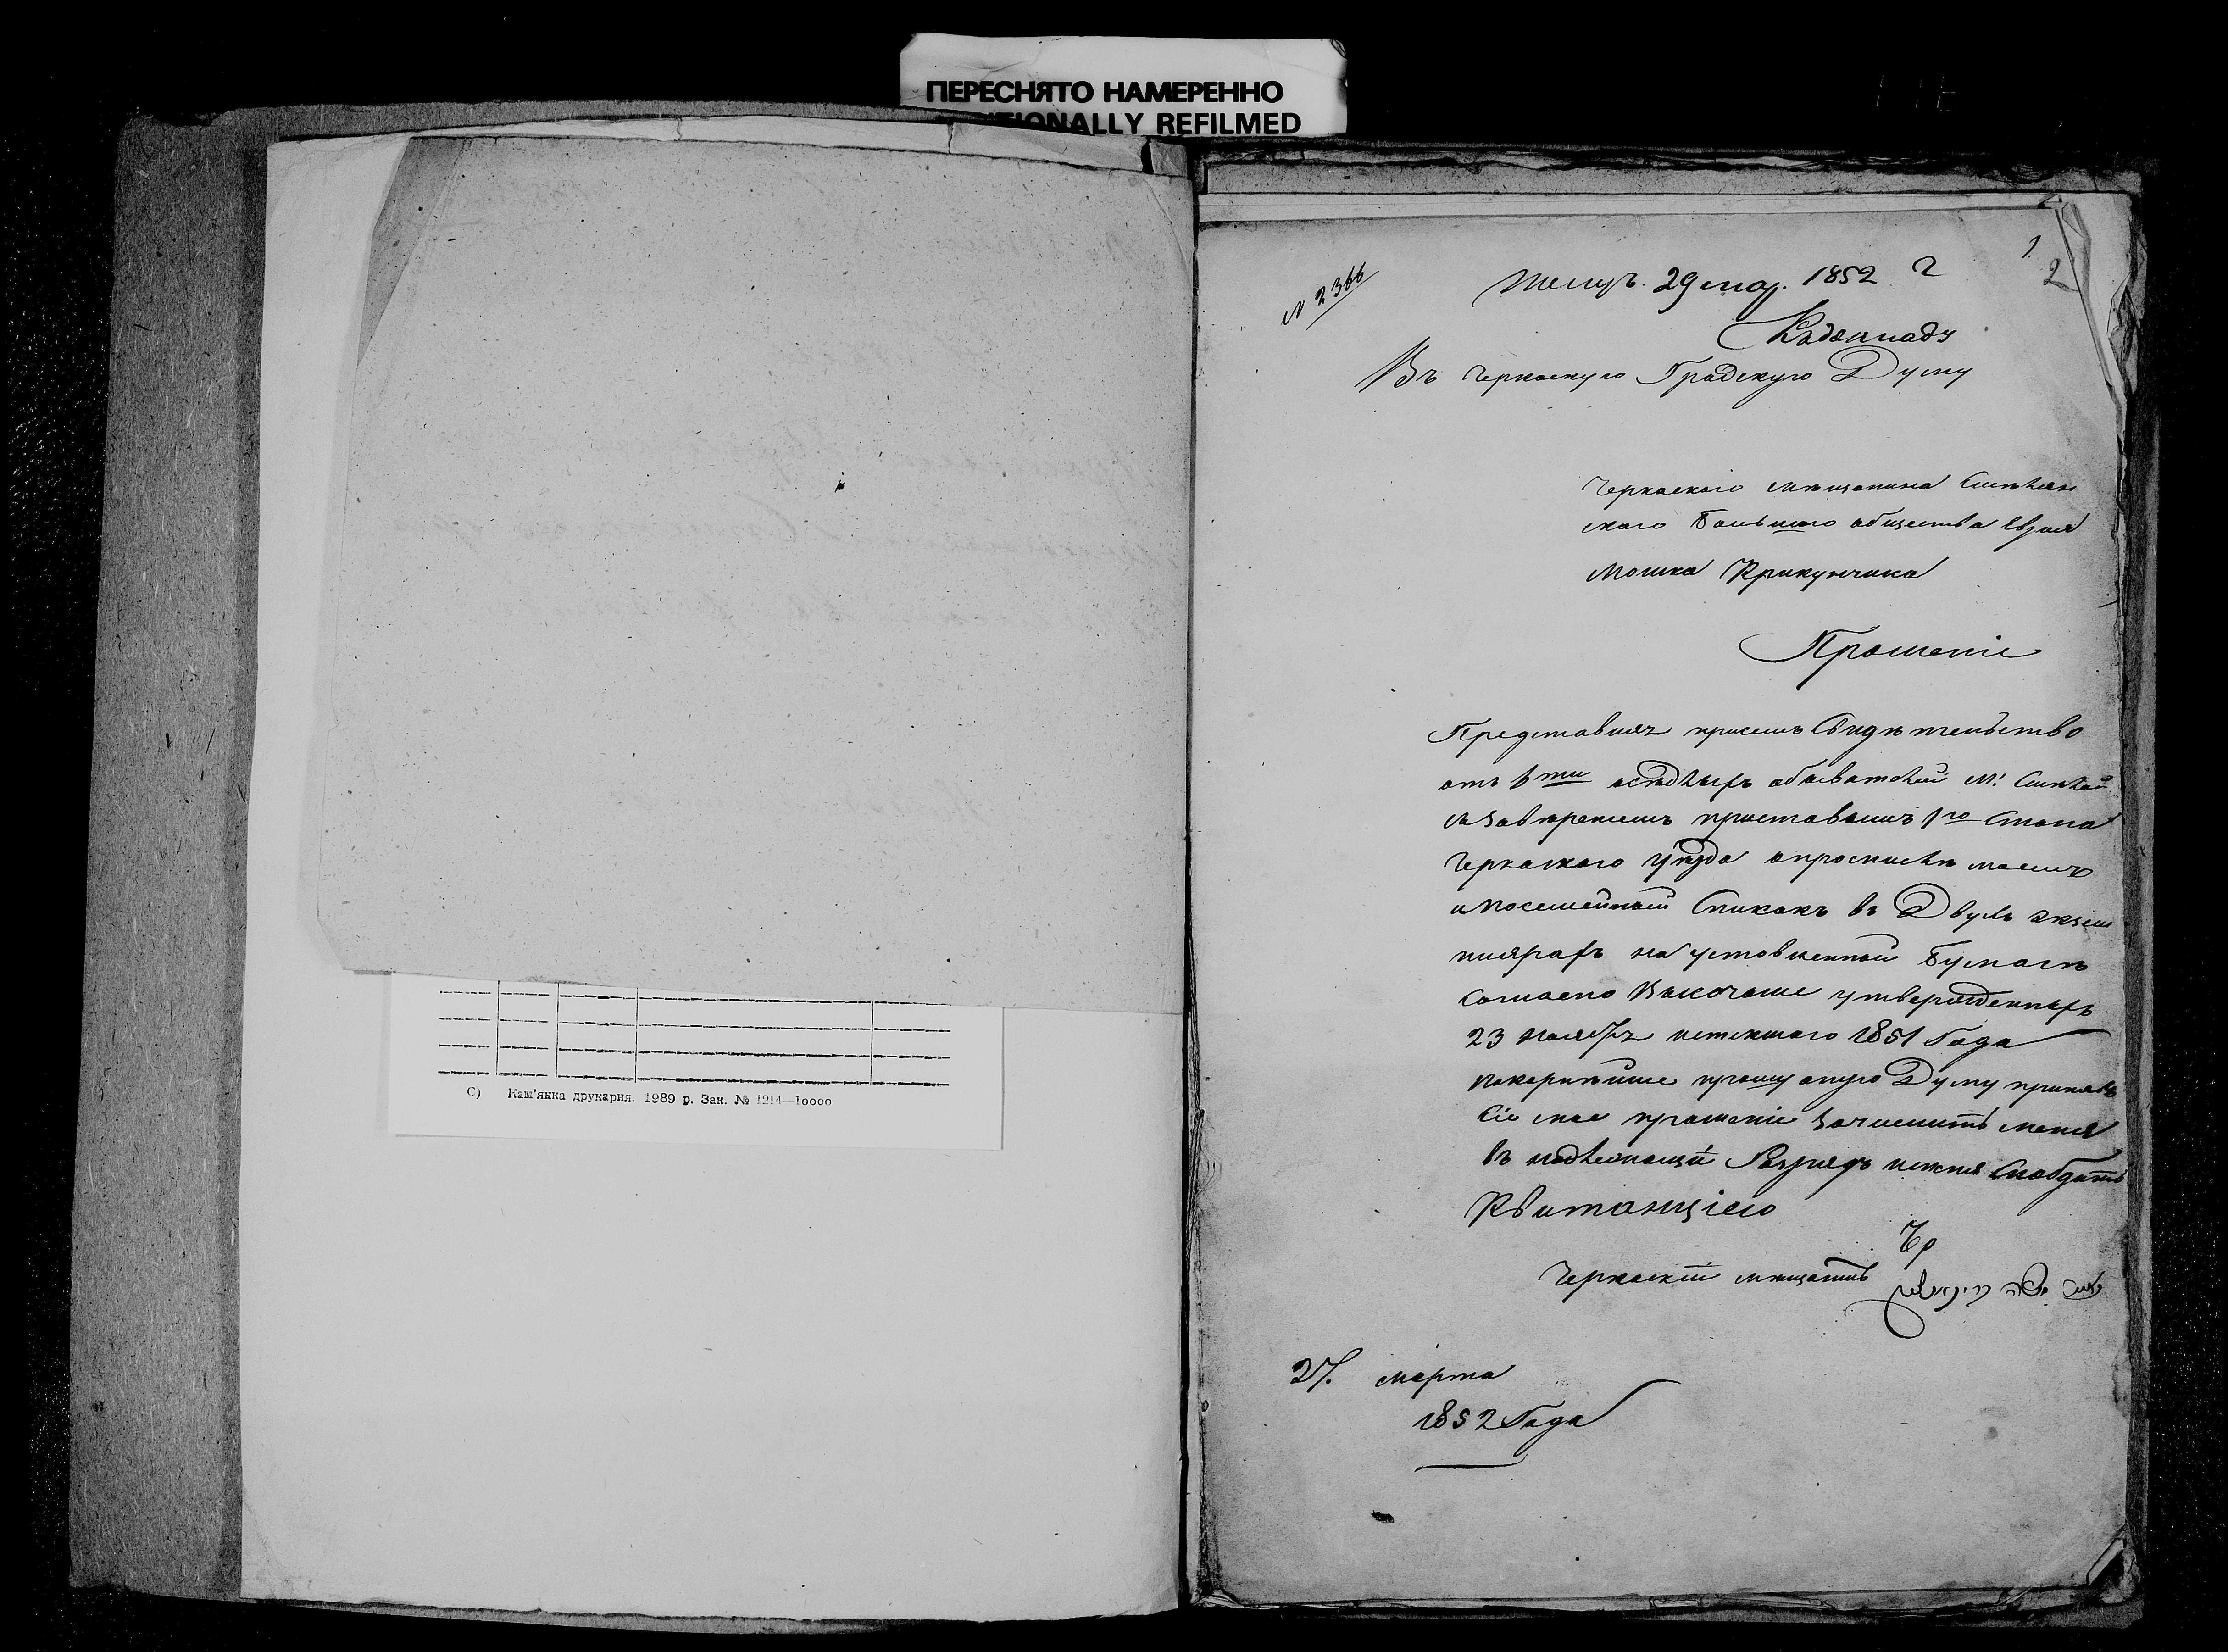 ПЕРЕСНЯТО НАМЕРЕННО
TIONALLY REFILMED
С) Кам'янка друкарня. 1989 р. Зак. № 1214—10000
1
2
№ 2366
29 мар. 1852 г
Въ Черкаскую Градскую Думу
Черкаскаго мѣщанина Смѣлян
скаго общества Еврея
Мошка Крикунчика
Прошеніе
Представляя присемъ Свидѣтельство
отъ 6ти осѣдлыхъ обывателей М. Смѣлой
приставомъ 1го Стана
Черкаского уѣзда
и посемейный Списокъ въ Двухъ экзем
плярахъ на установленной Бумагѣ
Согласно Высочайше утвержденныхъ
23 истекшаго 1851 Года
покорнѣйше прошу оную Думу принявъ
Сіе мое прошеніе Зачислить меня
въ надлежащій Разрядъ Снабдить
Квитанціею
Черкаскій мѣщанинъ
27. марта
1852 Года